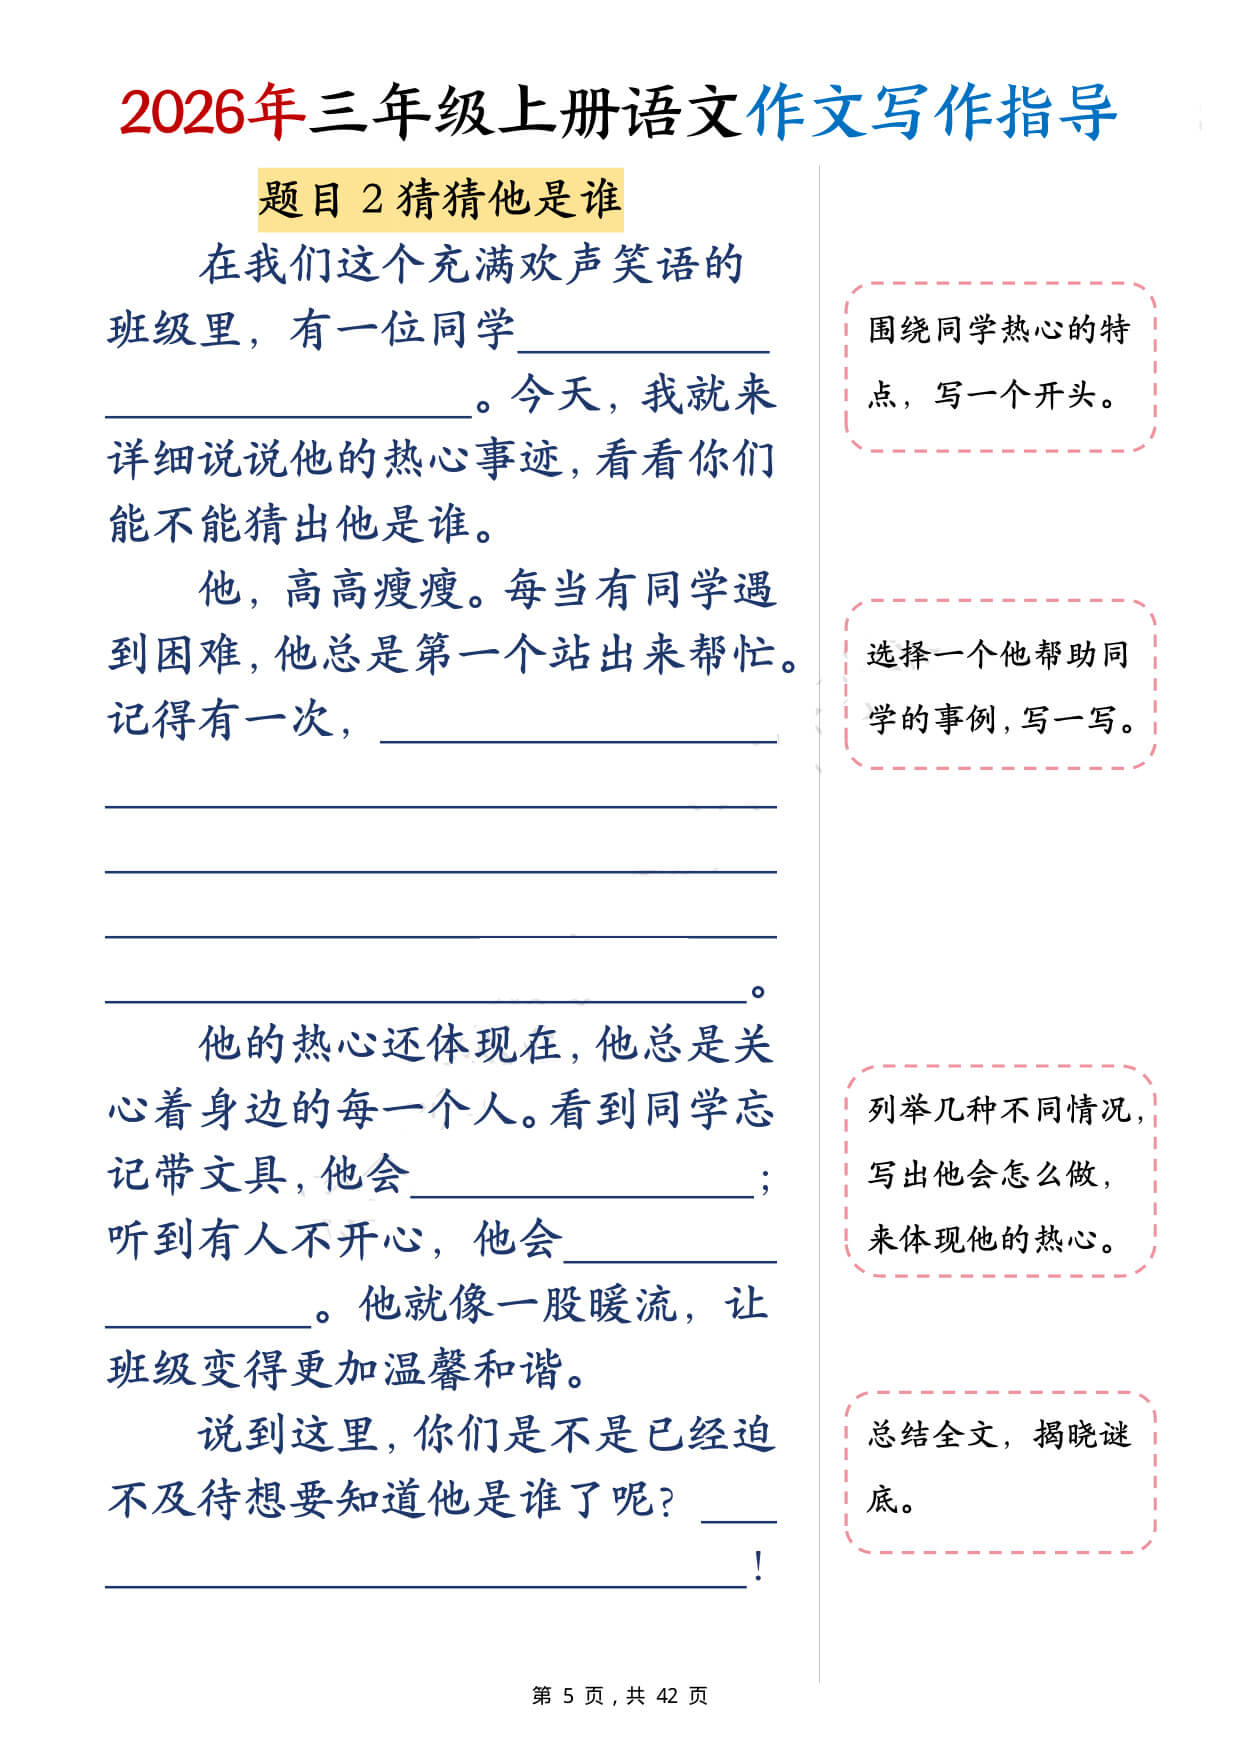 2026年三年级上册语文作文写作指导
题目 2 猜猜他是谁
在我们这个充满欢声笑语的
班级里，有一位同学
。今天，我就来
详细说说他的热心事迹，看看你们
能不能猜出他是谁。
他，高高瘦瘦。每当有同学遇
到困难，他总是第一个站出来帮忙。
记得有一次，
。
他的热心还体现在，他总是关
心着身边的每一个人。看到同学忘
记带文具，他会；
听到有人不开心，他会
。他就像一股暖流，让
班级变得更加温馨和谐。
说到这里，你们是不是已经迫
不及待想要知道他是谁了呢？
！
围绕同学热心的特
点，写一个开头。
选择一个他帮助同
学的事例，写一写。
列举几种不同情况，
写出他会怎么做，
来体现他的热心。
总结全文，揭晓谜
底。
第 5 页，共 42 页